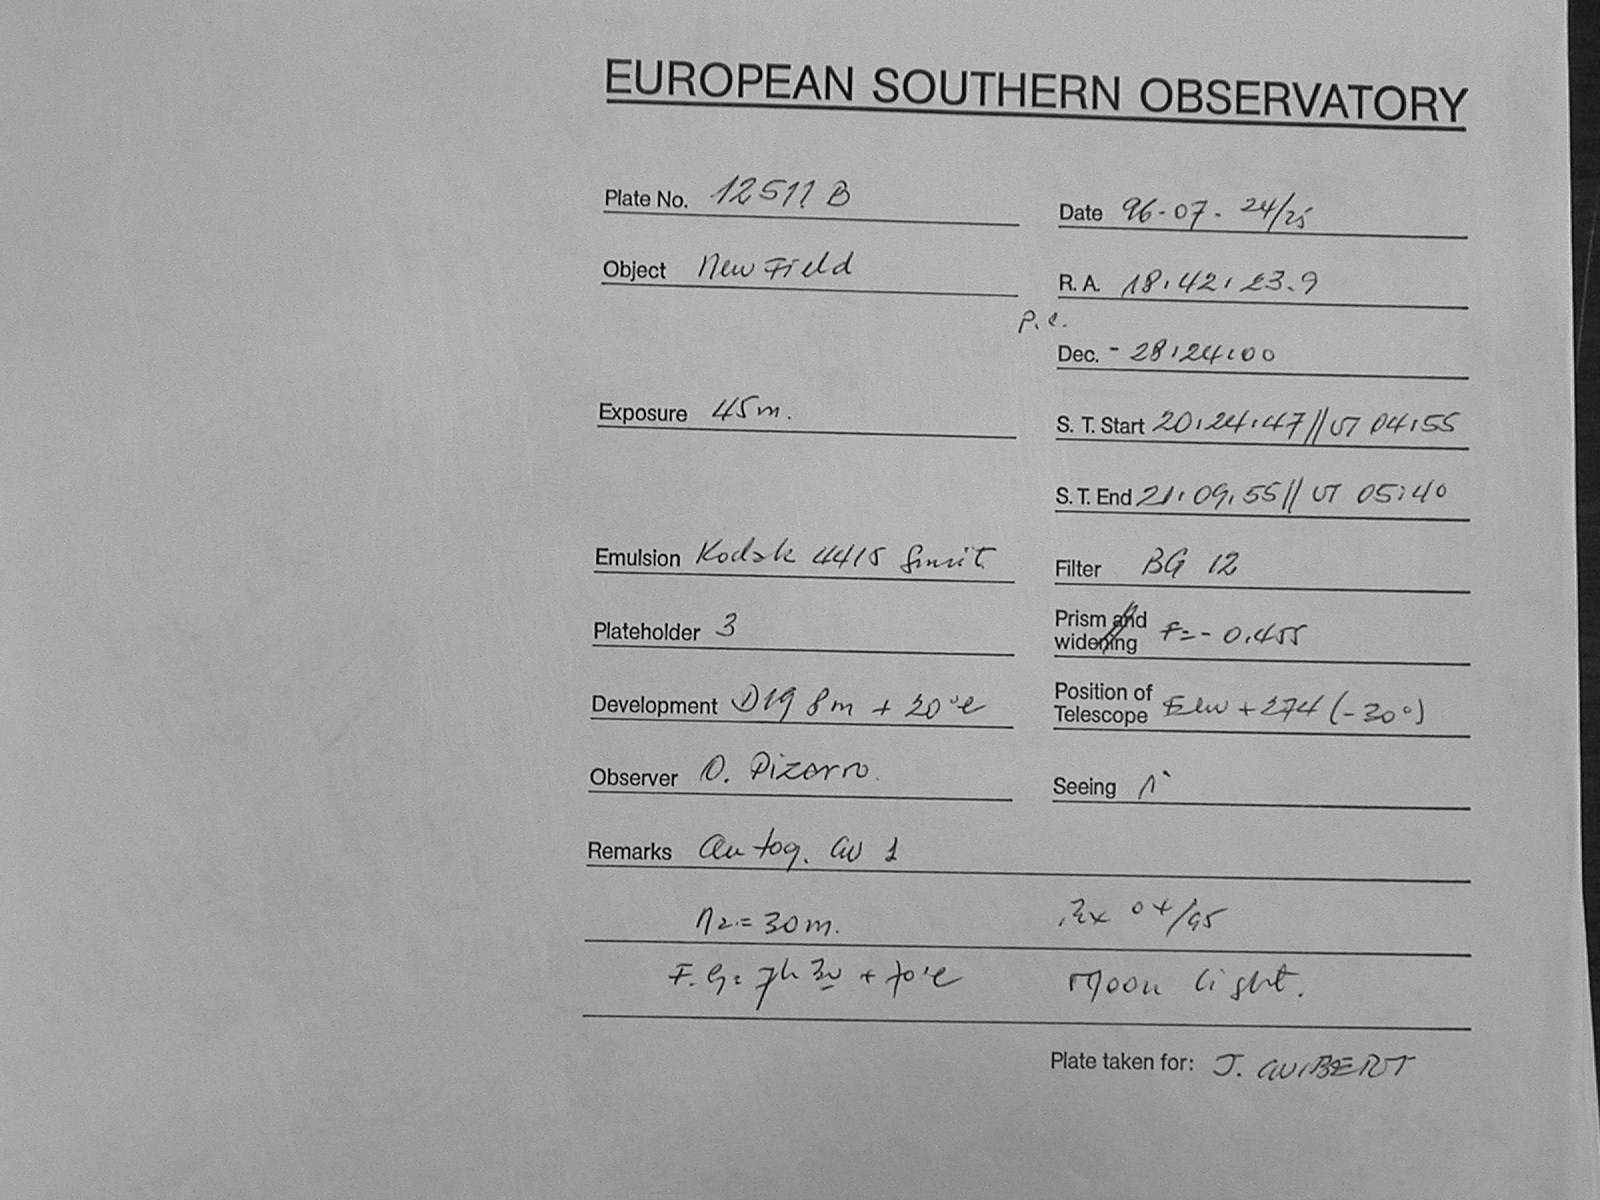 EUROPEAN SOUTHERN OBSERVATORY
Plate No. 12511 B
Date 96-07-24/25
Object New Field
R. A. 18:42:23.9
Dec. -28:24:00
Exposure 45m.
S. T. Start 20:24:47 // UT 04:55
S. T. End 21:09:55 // UT 05:40
Emulsion Kodak 4415
Filter BG 12
Plateholder 3
Prism and widening F=-0.455
Development D19 8m + 20°c
Position of Telescope E +274 (-30°)
Observer O. Pizarro.
Seeing 1"
Remarks
N2=30m.
Moon light.
Plate taken for: J. GUIBERT